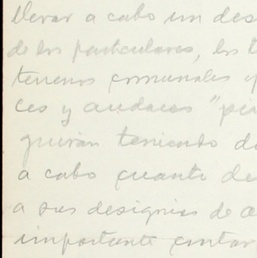 llevar a cabo un des
de los particulares, los t
terrenos comunales y
ces y audaces "per
guirán teniendo d
a cabo cuanto de
a sus designios de a
importante contar